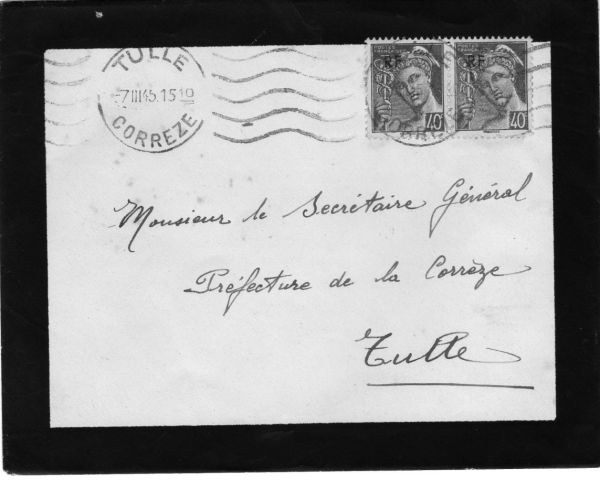 TULLE
-7 III 45. 15 19
CORREZE
POSTES FRANÇAISES
RF
40
POSTES FRANÇAISES
RF
40
Monsieur le Secrétaire Général
Préfecture de la Corrèze
Tulle